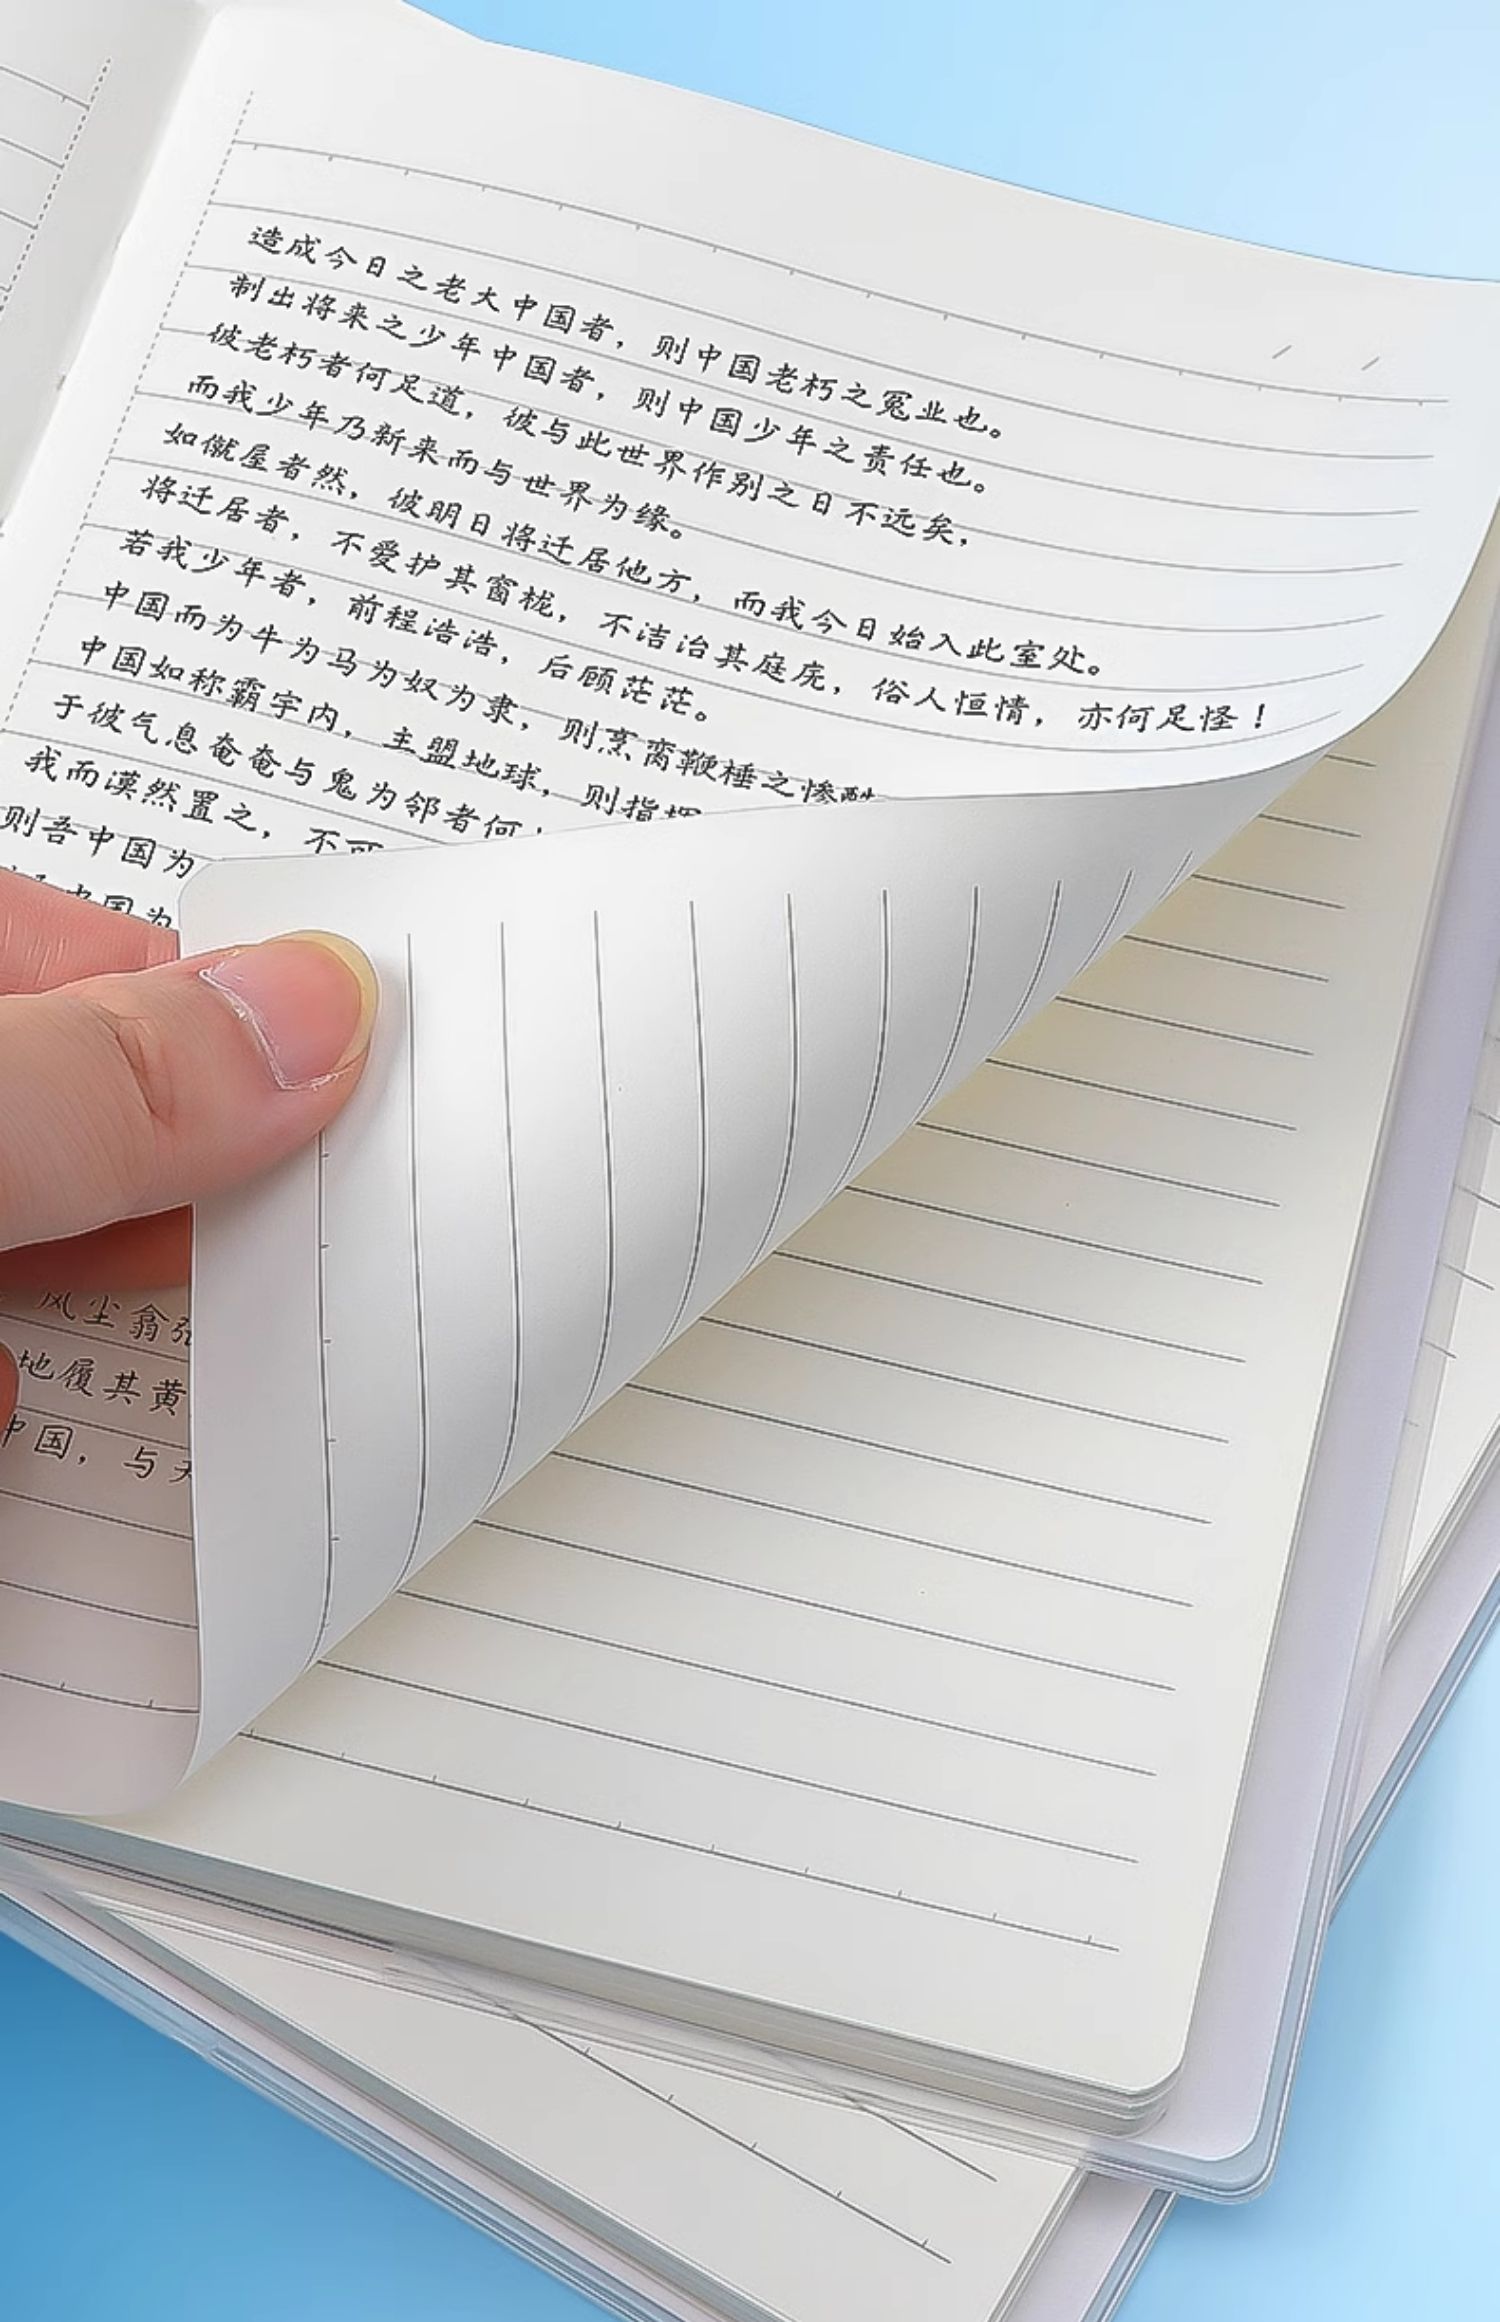 造成今日之老大中国者，则中国老朽之冤业也。
制出将来之少年中国者，则中国少年之责任也。
彼老朽者何足道，彼与此世界作别之日不远矣，
而我少年乃新来而与世界为缘。
如僦屋者然，彼明日将迁居他方，而我今日始入此室处。
将迁居者，不爱护其窗栊，不洁治其庭庑，俗人恒情，亦何足怪！
若我少年者，前程浩浩，后顾茫茫。
中国而为牛为马为奴为隶，则烹脔鞭棰之惨酷
中国如称霸宇内，主盟地球，则指挥
于彼气息奄奄与鬼为邻者何
我而漠然置之，不可
则吾中国为
中国为
风尘翕张
地履其黄
中国，与天